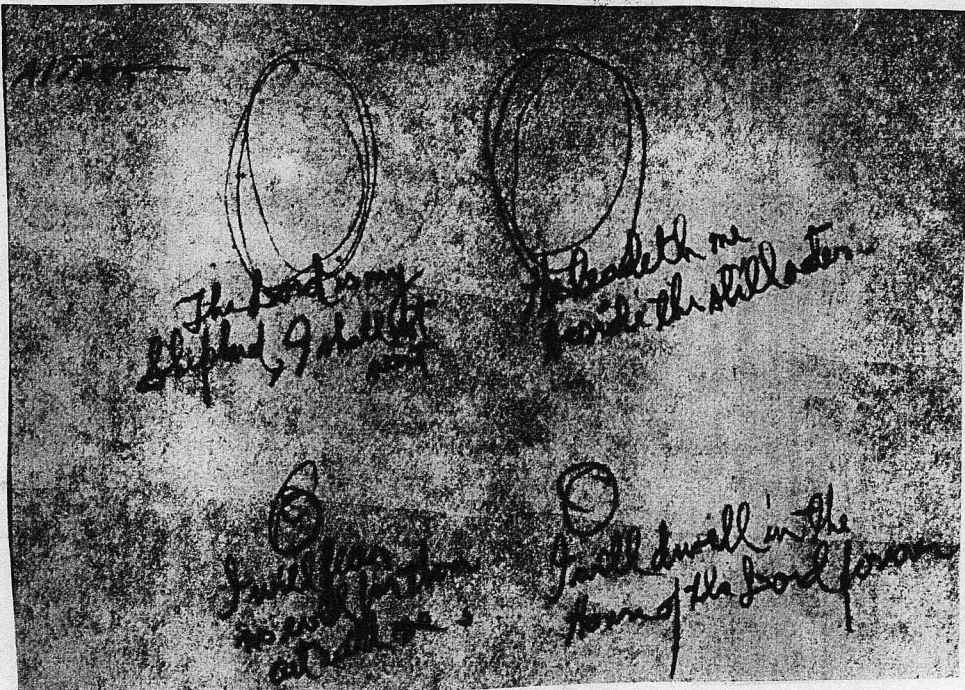 The Lord is my
Shepherd, I shall not
want
He leadeth me
beside the still waters
I will fear
no evil for thou
art with me
I will dwell in the
house of the Lord forever